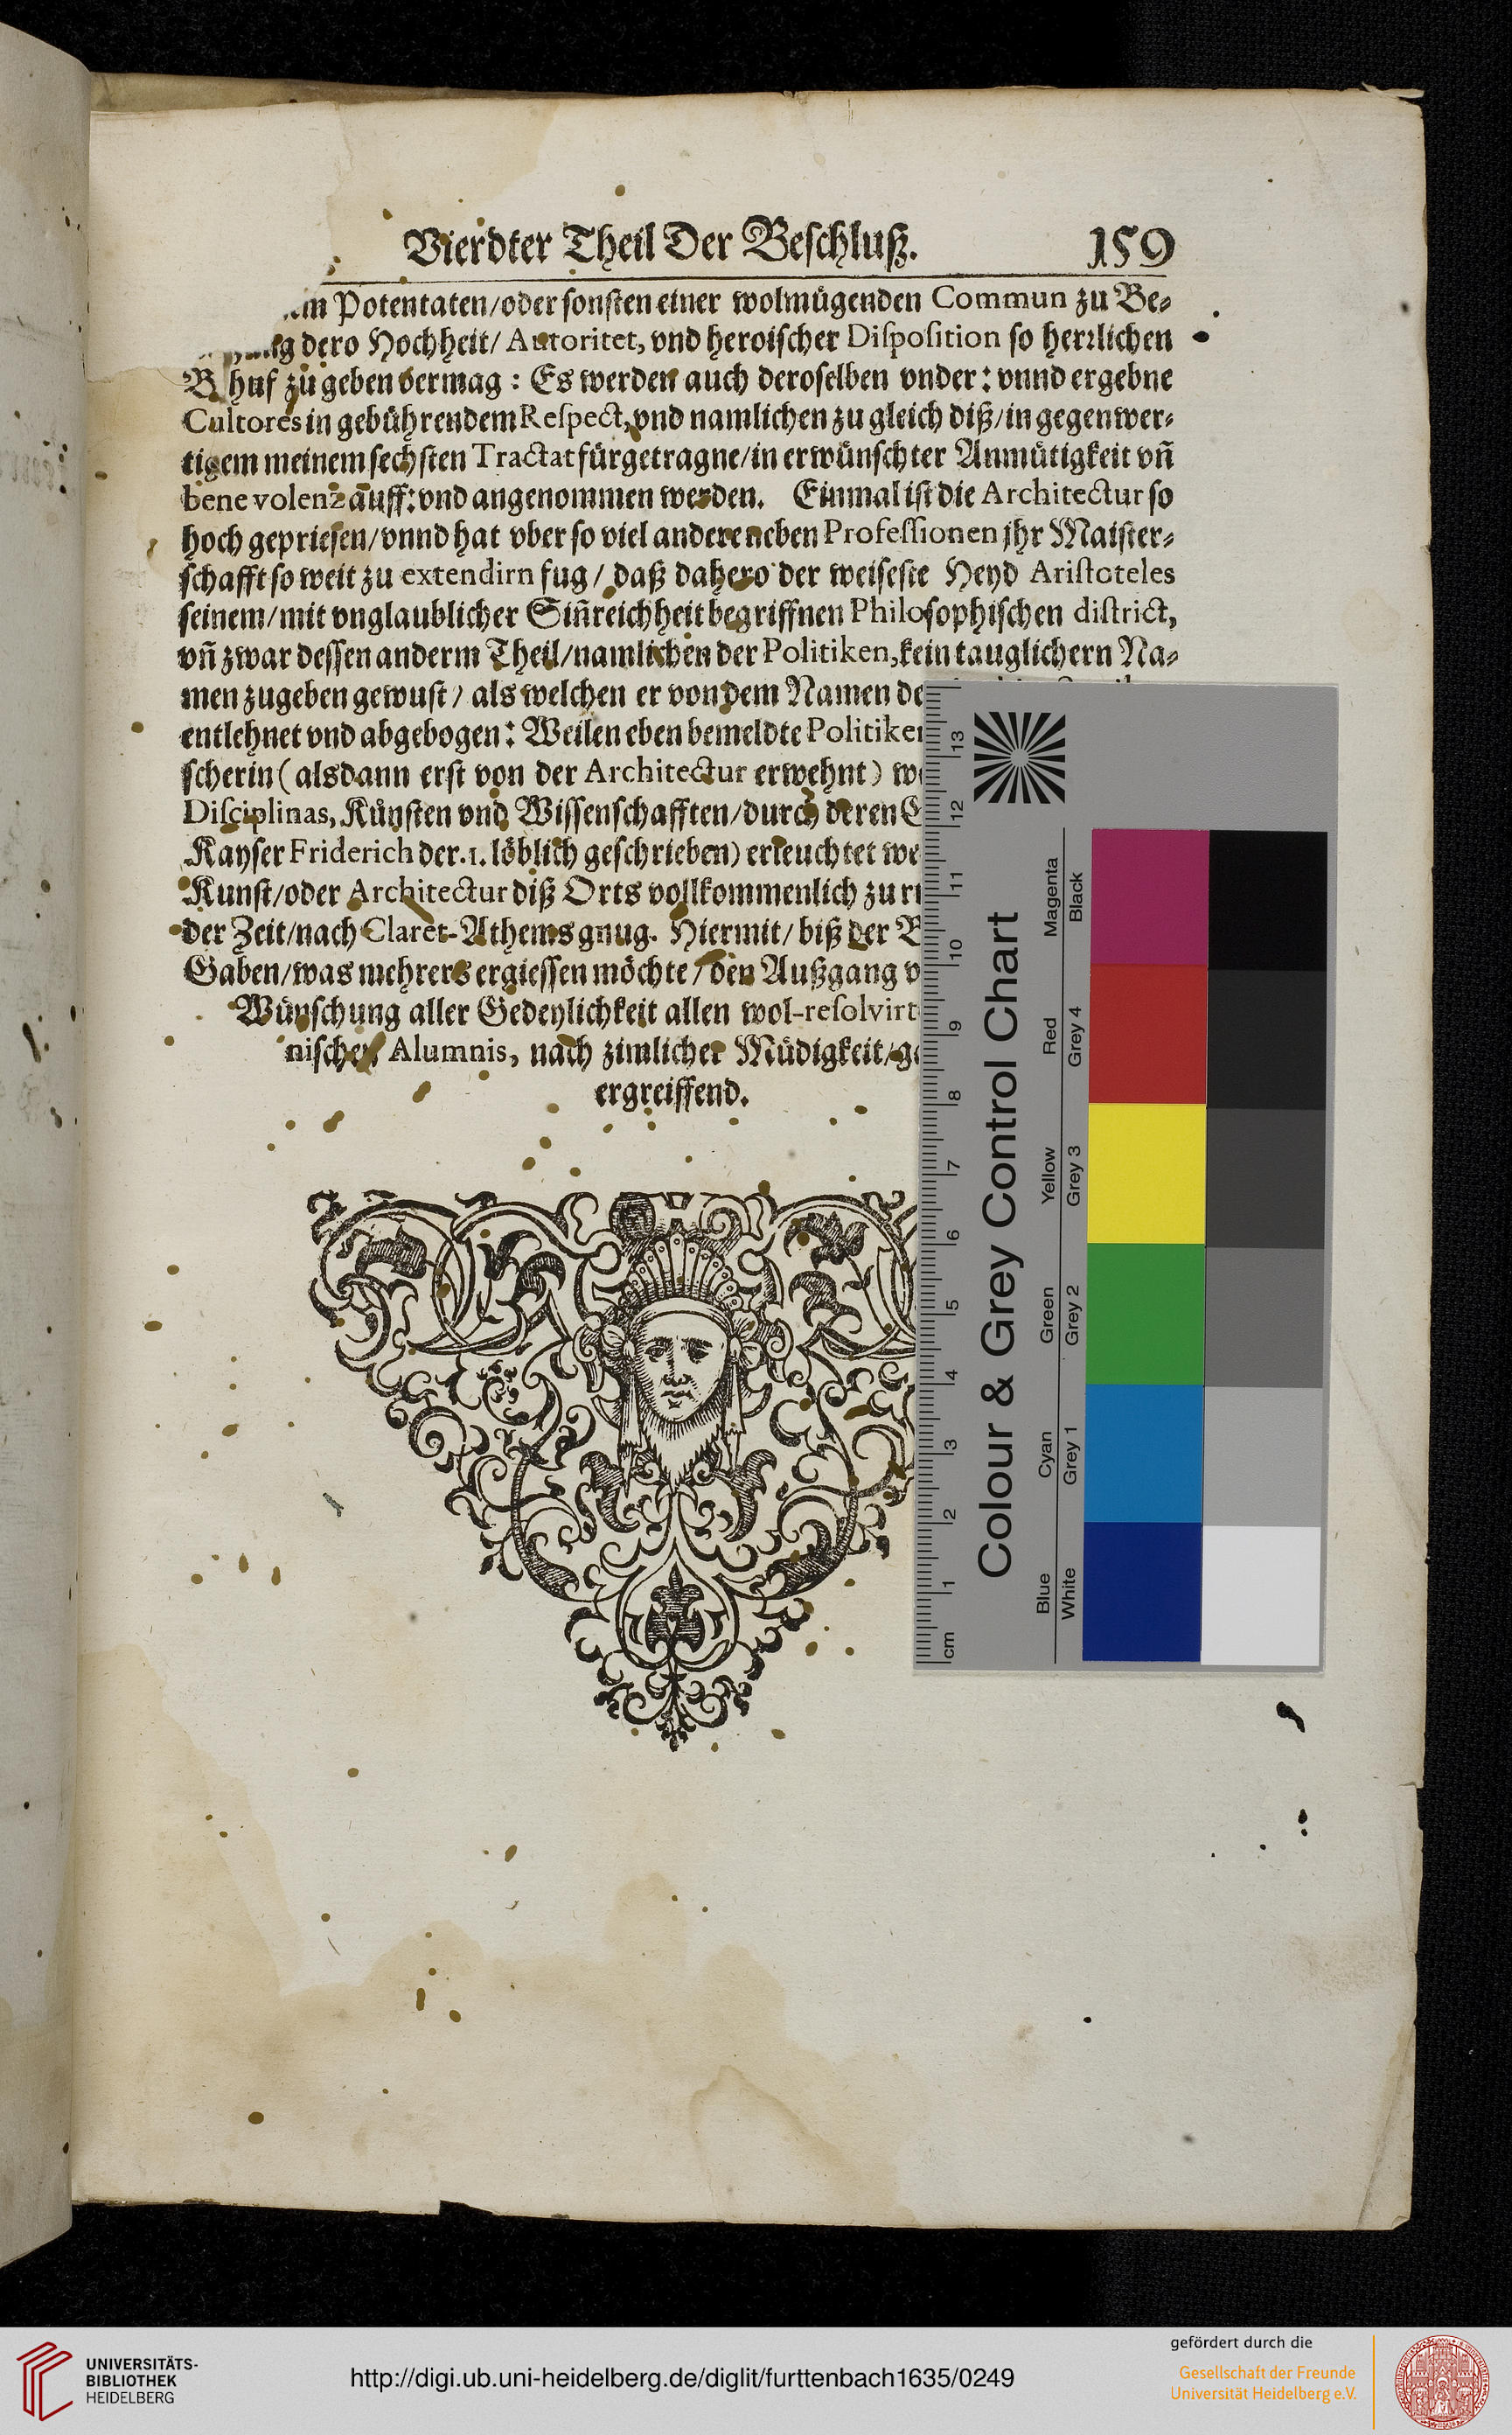 Vierdter Theil Der Beschluß. 159
Potentaten/oder sonsten einer wolmügenden Commun zu Be-
dero Hochheit/ Autoritet, vnd heroischer Disposition so herrlichen
zu geben vermag : Es werden auch deroselben vnder: vnnd ergebne
Cultores in gebührendem Respect, vnd namlichen zu gleich diß/in gegenwer-
tigem meinem sechsten Tractat fürgetragne/in erwünschter Anmütigkeit vñ
benevolenz auff: vnd angenommen werden. Einmal ist die Architectur so
hoch gepriesen/vnnd hat vber so viel andere neben Professionen jhr Maister-
schafft so weit zu extendirn fug / daß dahero der weiseste Heyd Aristoteles
seinem/mit vnglaublicher Siñreichheit begriffnen Philosophischen district,
vñ zwar dessen anderm Theil/namlichen der Politiken, kein tauglichern Na-
men zugeben gewust / als welchen er von dem Namen
entlehnet vnd abgebogen: Weilen eben bemeldte
scherin (alsdann erst von der Architectur erwehnt)
Disciplinas, Künsten vnd Wissenschafften/durch deren
Kayser Friderich der .1. löblich geschrieben) erleuchtet
Kunst/oder Architectur diß Orts vollkommenlich zu
der Zeit/nach Claret-Athems gnug. Hiermit/ biß der
Gaben/was mehrers ergiessen möchte / den Außgang
Wünschung aller Gedeylichkeit allen
nischen Alumnis, nach zimlicher Müdigkeit/
ergreiffend.
Colour & Grey Control Chart
Magenta Red Yellow Green Cyan Blue
Black Grey 4 Grey 3 Grey 2 Grey 1 White
13 12 11 10 9 8 7 6 5 4 3 2 1 cm
UNIVERSITÄTS-
BIBLIOTHEK
HEIDELBERG
http://digi.ub.uni-heidelberg.de/diglit/furttenbach1635/0249
gefördert durch die
Gesellschaft der Freunde
Universität Heidelberg e.V.